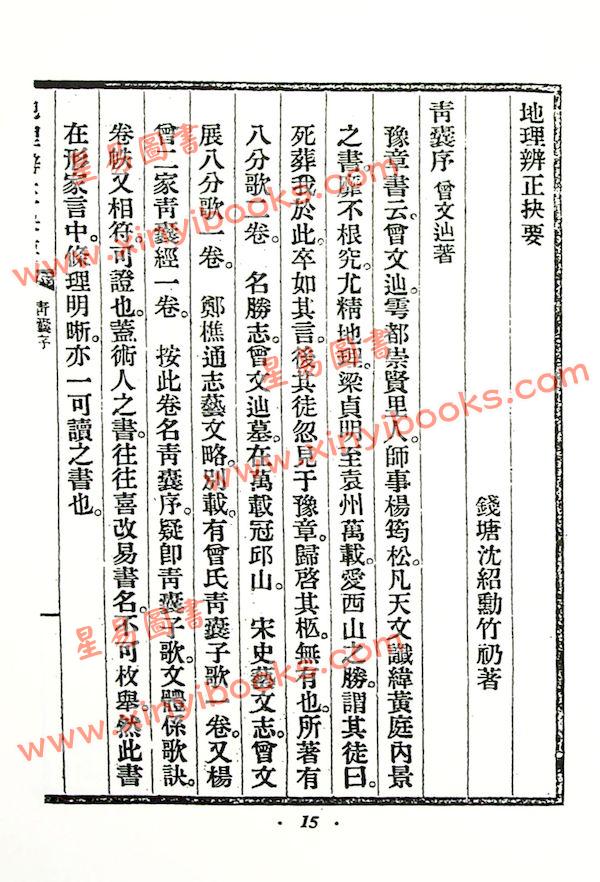 地理辨正抉要
錢塘沈紹勳竹礽著
青囊序 曾文辿著
豫章書云。曾文辿。雩都崇賢里人。師事楊筠松。凡天文讖緯黃庭內景
之書。靡不根究。尤精地理。梁貞明至袁州萬載。愛西山之勝。謂其徒曰。
死葬我於此。卒如其言。後其徒忽見于豫章。歸啓其柩。無有也。所著有
八分歌一卷。 名勝志。曾文辿墓。在萬載冠邱山。 宋史藝文志。曾文
展八分歌一卷。 鄭樵通志藝文略。別載。有曾氏青囊子歌一卷。又楊
曾二家青囊經一卷。 按此卷名青囊序。疑卽青囊子歌。文體係歌訣。
卷帙又相符。可證也。蓋術人之書。往往喜改易書名。不可枚舉。然此書
在形家言中。條理明晰。亦一可讀之書也。
青囊序
一
· 15 ·
星易圖書
www.xinyibooks.com
星易圖書
www.xinyibooks.com
星易圖書
www.xinyibooks.com